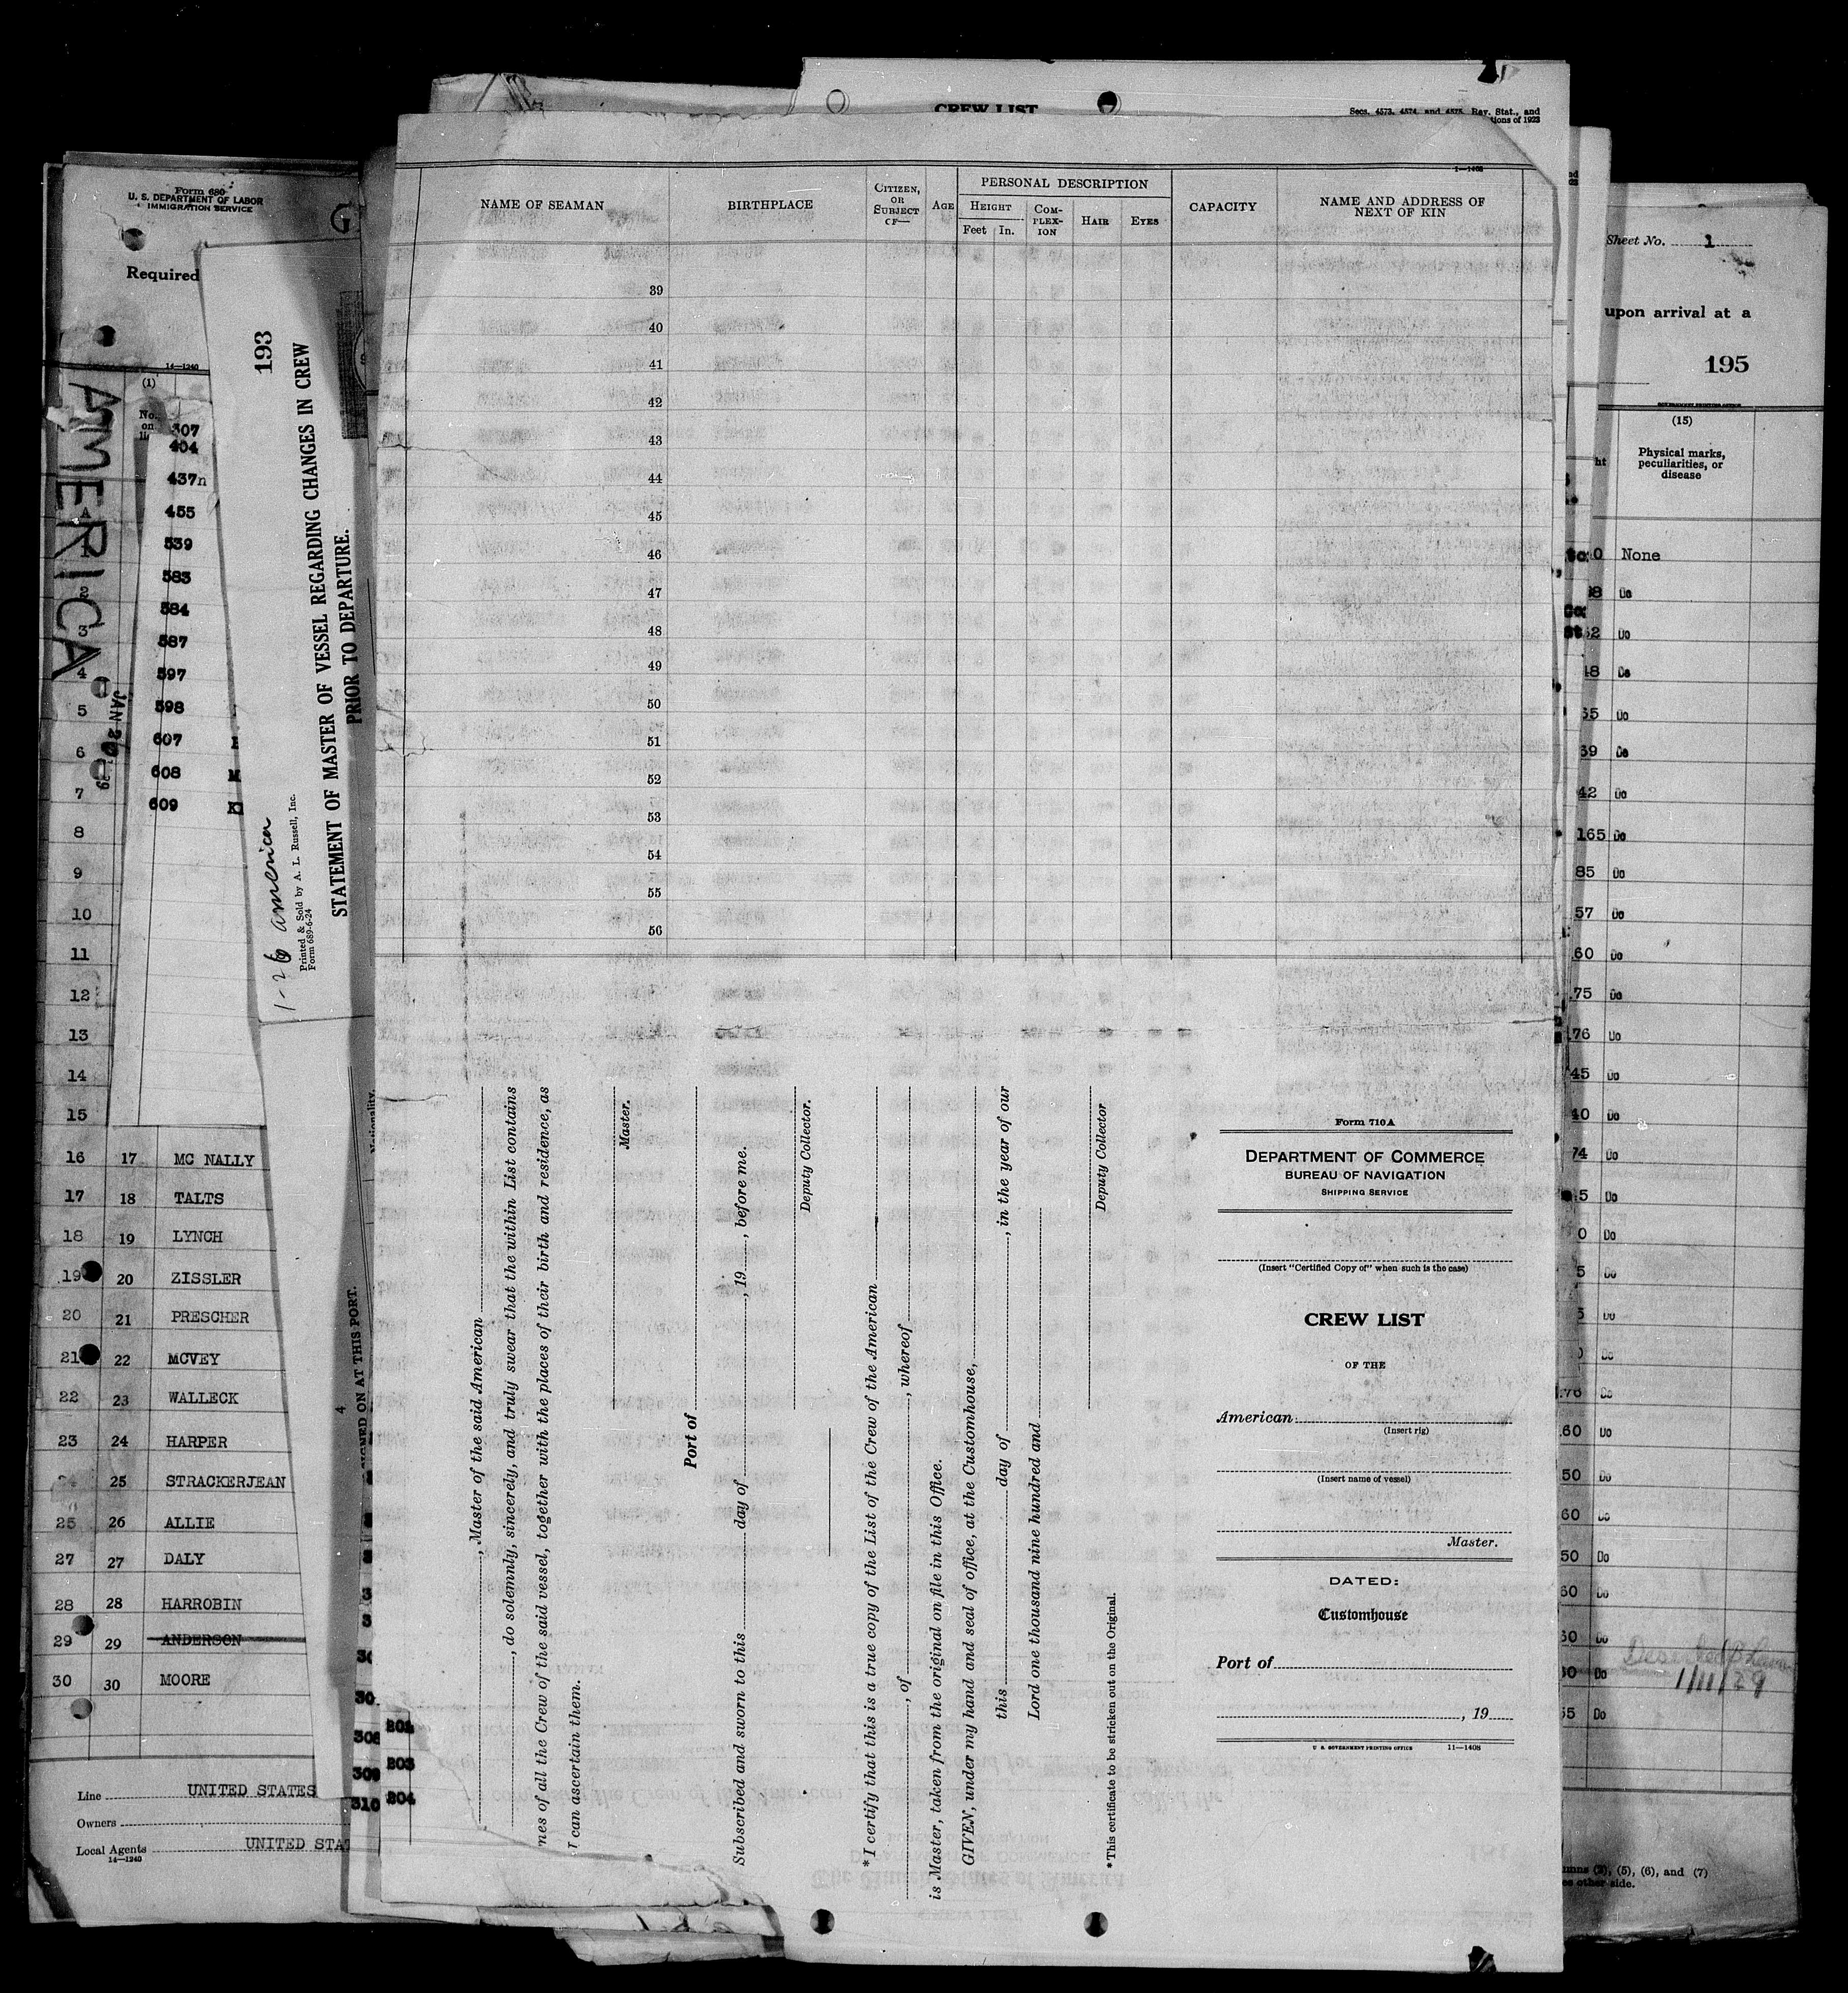 CREW LIST
Secs. 4573, 4574, and 4575, Rev. Stat., and
tions of 1923
1—1408
NAME OF SEAMAN
BIRTHPLACE
CITIZEN, OR SUBJECT OF—
AGE
PERSONAL DESCRIPTION
HEIGHT
Feet In.
COM-PLEX-ION
HAIR
EYES
CAPACITY
NAME AND ADDRESS OF NEXT OF KIN
39
40
41
42
43
44
45
46
47
48
49
50
51
52
53
54
55
56
, Master of the said American
, do solemnly, sincerely, and truly swear that the within List contains
nes of all the Crew of the said vessel, together with the places of their birth and residence, as
I can ascertain them.
Master.
Port of
Subscribed and sworn to this day of , 19 , before me.
Deputy Collector.
*I certify that this is a true copy of the List of the Crew of the American
, of , whereof
is Master, taken from the original on file in this Office.
GIVEN, under my hand and seal of office, at the Customhouse,
this day of , in the year of our
Lord one thousand nine hundred and
Deputy Collector
*This certificate to be stricken out on the Original.
Form 710A
DEPARTMENT OF COMMERCE
BUREAU OF NAVIGATION
SHIPPING SERVICE
(Insert "Certified Copy of" when such is the case)
CREW LIST
OF THE
American
(Insert rig)
(Insert name of vessel)
Master.
DATED:
Customhouse
Port of
, 19
U. S. GOVERNMENT PRINTING OFFICE 11—1408
Form 680
U. S. DEPARTMENT OF LABOR
IMMIGRATION SERVICE
G
Required
14—1240
(1)
No. on li
AMERICA
JAN 26 1929
307
404
437n
455
539
583
584
587
597
598
607
608 M
609
193
STATEMENT OF MASTER OF VESSEL REGARDING CHANGES IN CREW
PRIOR TO DEPARTURE.
Printed & Sold by A. L. Russell, Inc.
Form 689-6-24
1-26 america
A
1
2
3
4
5
6
7
8
9
10
11
12
13
14
15
16 17 MC NALLY
17 18 TALTS
18 19 LYNCH
19 20 ZISSLER
20 21 PRESCHER
21 22 MCVEY
22 23 WALLECK
23 24 HARPER
24 25 STRACKERJEAN
25 26 ALLIE
27 27 DALY
28 28 HARROBIN
29 29 ANDERSON
30 30 MOORE
Line UNITED STATES
Owners
Local Agents UNITED STAT
14—1240
Nationality.
4
SIGNED ON AT THIS PORT.
308
309
310
203
204
Sheet No. 1
upon arrival at a
195
GOVERNMENT PRINTING OFFICE
(15)
Physical marks, peculiarities, or disease
ht
None
Do
52 Do
48 Do
55 Do
39 Do
42 Do
165 Do
85 Do
57 Do
60 Do
75 Do
76 Do
45 Do
40 Do
74 Do
5 Do
0 Do
5 Do
Do
Do
Do
60 Do
50 Do
60 Do
50 Do
60 Do
Do
Do
Deserted
1/11/29
55 Do
mns (3), (5), (6), and (7)
other side.